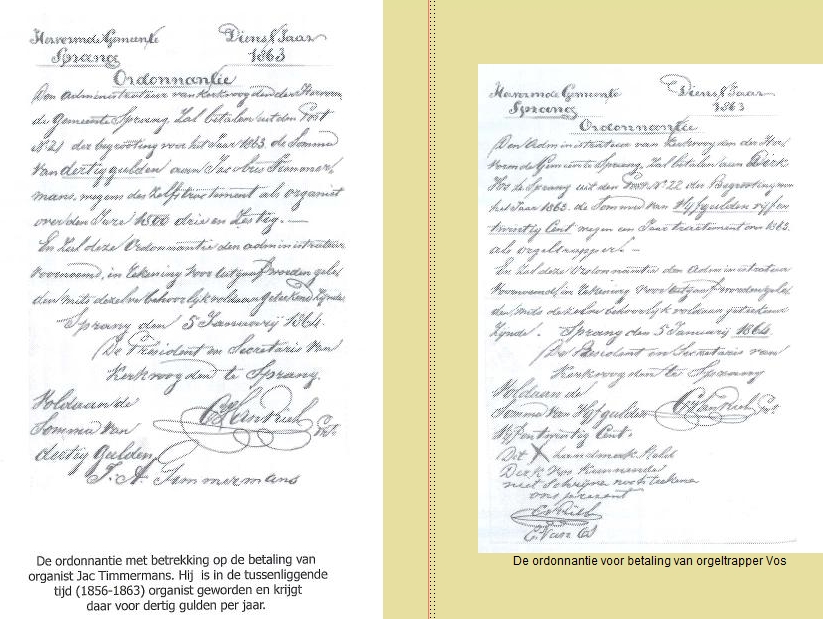 Hervormde Gemeente
Sprang
Dienst Jaar
1863
Ordonnantie
Den administrateur van kerkvoogden der Hervorm
de Gemeente Sprang Zal betalen uit den Post
N 21 der begrooting voor het Jaar 1863 de Somma
van dertig gulden aan Jacobus Timmer,
mans, wegens des Zelfs tractement als organist
over den Jare drie en Zestig.
En Zal deze Ordonnantie den administrateur
voornoemd, in rekening voor uitgaaf worden gele
den mits dezelve behoorlijk voldaan geteekend Zynde
Sprang den 5 Januarij 1864.
De President en Secretaris van
Kerkvoogden te Sprang.
Voldaan de
Somma van
dertig Gulden
J. A. Timmermans
De ordonnantie met betrekking op de betaling van
organist Jac Timmermans. Hij is in de tussenliggende
tijd (1856-1863) organist geworden en krijgt
daar voor dertig gulden per jaar.
Hervormde Gemeente
Sprang
Dienst Jaar
1863
Ordonnantie
Den Administrateur van Kerkvoogden der Her
vormde Gemeente Sprang, Zal betalen aan Dirk
Vos te Sprang uit den Post N 22 der Begrooting voor
het Jaar 1863. de Somma van Vijf gulden vijf en
twintig Cent wegen een Jaar tractement over 1863.
als orgeltrapper.
En Zal deze Ordonnantie den Administrateur
Voornoemd, in rekening voor uitgaaf worden gele
den mits dezelve behoorlijk voldaan geteekend
Zynde. Sprang den 5 Januarij 1864.
De President en Secretaris van
Kerkvoogden te Sprang
Voldaan de
Somma van Vijf gulden
Vijf en twintig Cent.
Dit X handmerk Stelde
Dirk Vos Kunnende
niet Schrijven noch teekenen
ons present
De ordonnantie voor betaling van orgeltrapper Vos